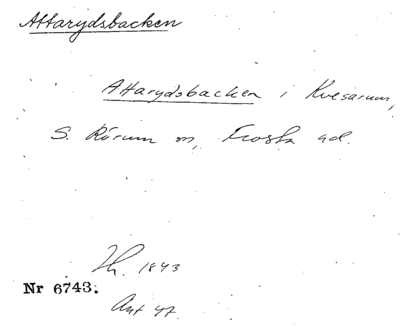 Attarydsbacken
Attarydsbacken i Kvesarum,
S. Rörum sn, Frosta hd.
Th. 1843
Nr 6743.
Ant 47